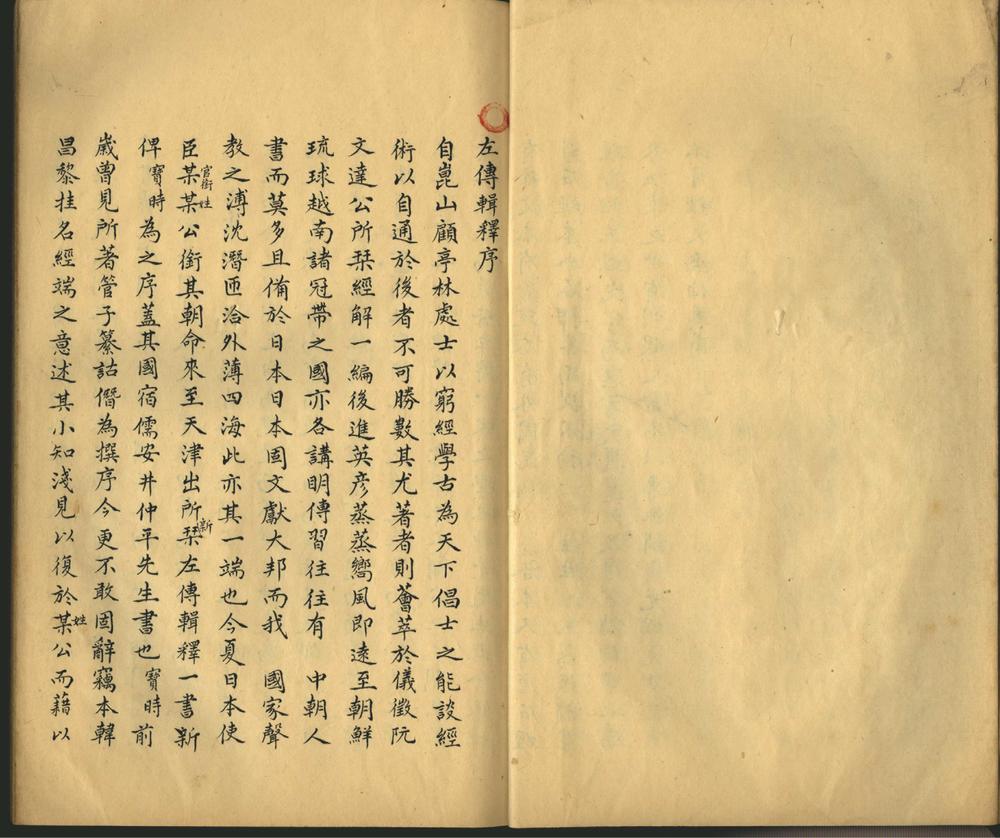 左傳輯釋序
自崑山顧亭林處士以窮經學古為天下倡士之能談經
術以自通於後者不可勝數其尤著者則薈萃於儀徵阮
文達公所栞經解一編後進英彦蒸蒸嚮風即遠至朝鮮
琉球越南諸冠帶之國亦各講明傳習往往有　中朝人
書而莫多且備於日本日本固文獻大邦而我　國家聲
教之溥沈潛匝洽外薄四海此亦其一端也今夏日本使
臣某官銜某姓公銜其朝命來至天津出所新栞左傳輯釋一書新
俾寶時為之序蓋其國宿儒安井仲平先生書也寶時前
歲曾見所著管子纂詁僭為撰序今更不敢固辭竊本韓
昌黎挂名經端之意述其小知淺見以復於某姓公而藉以